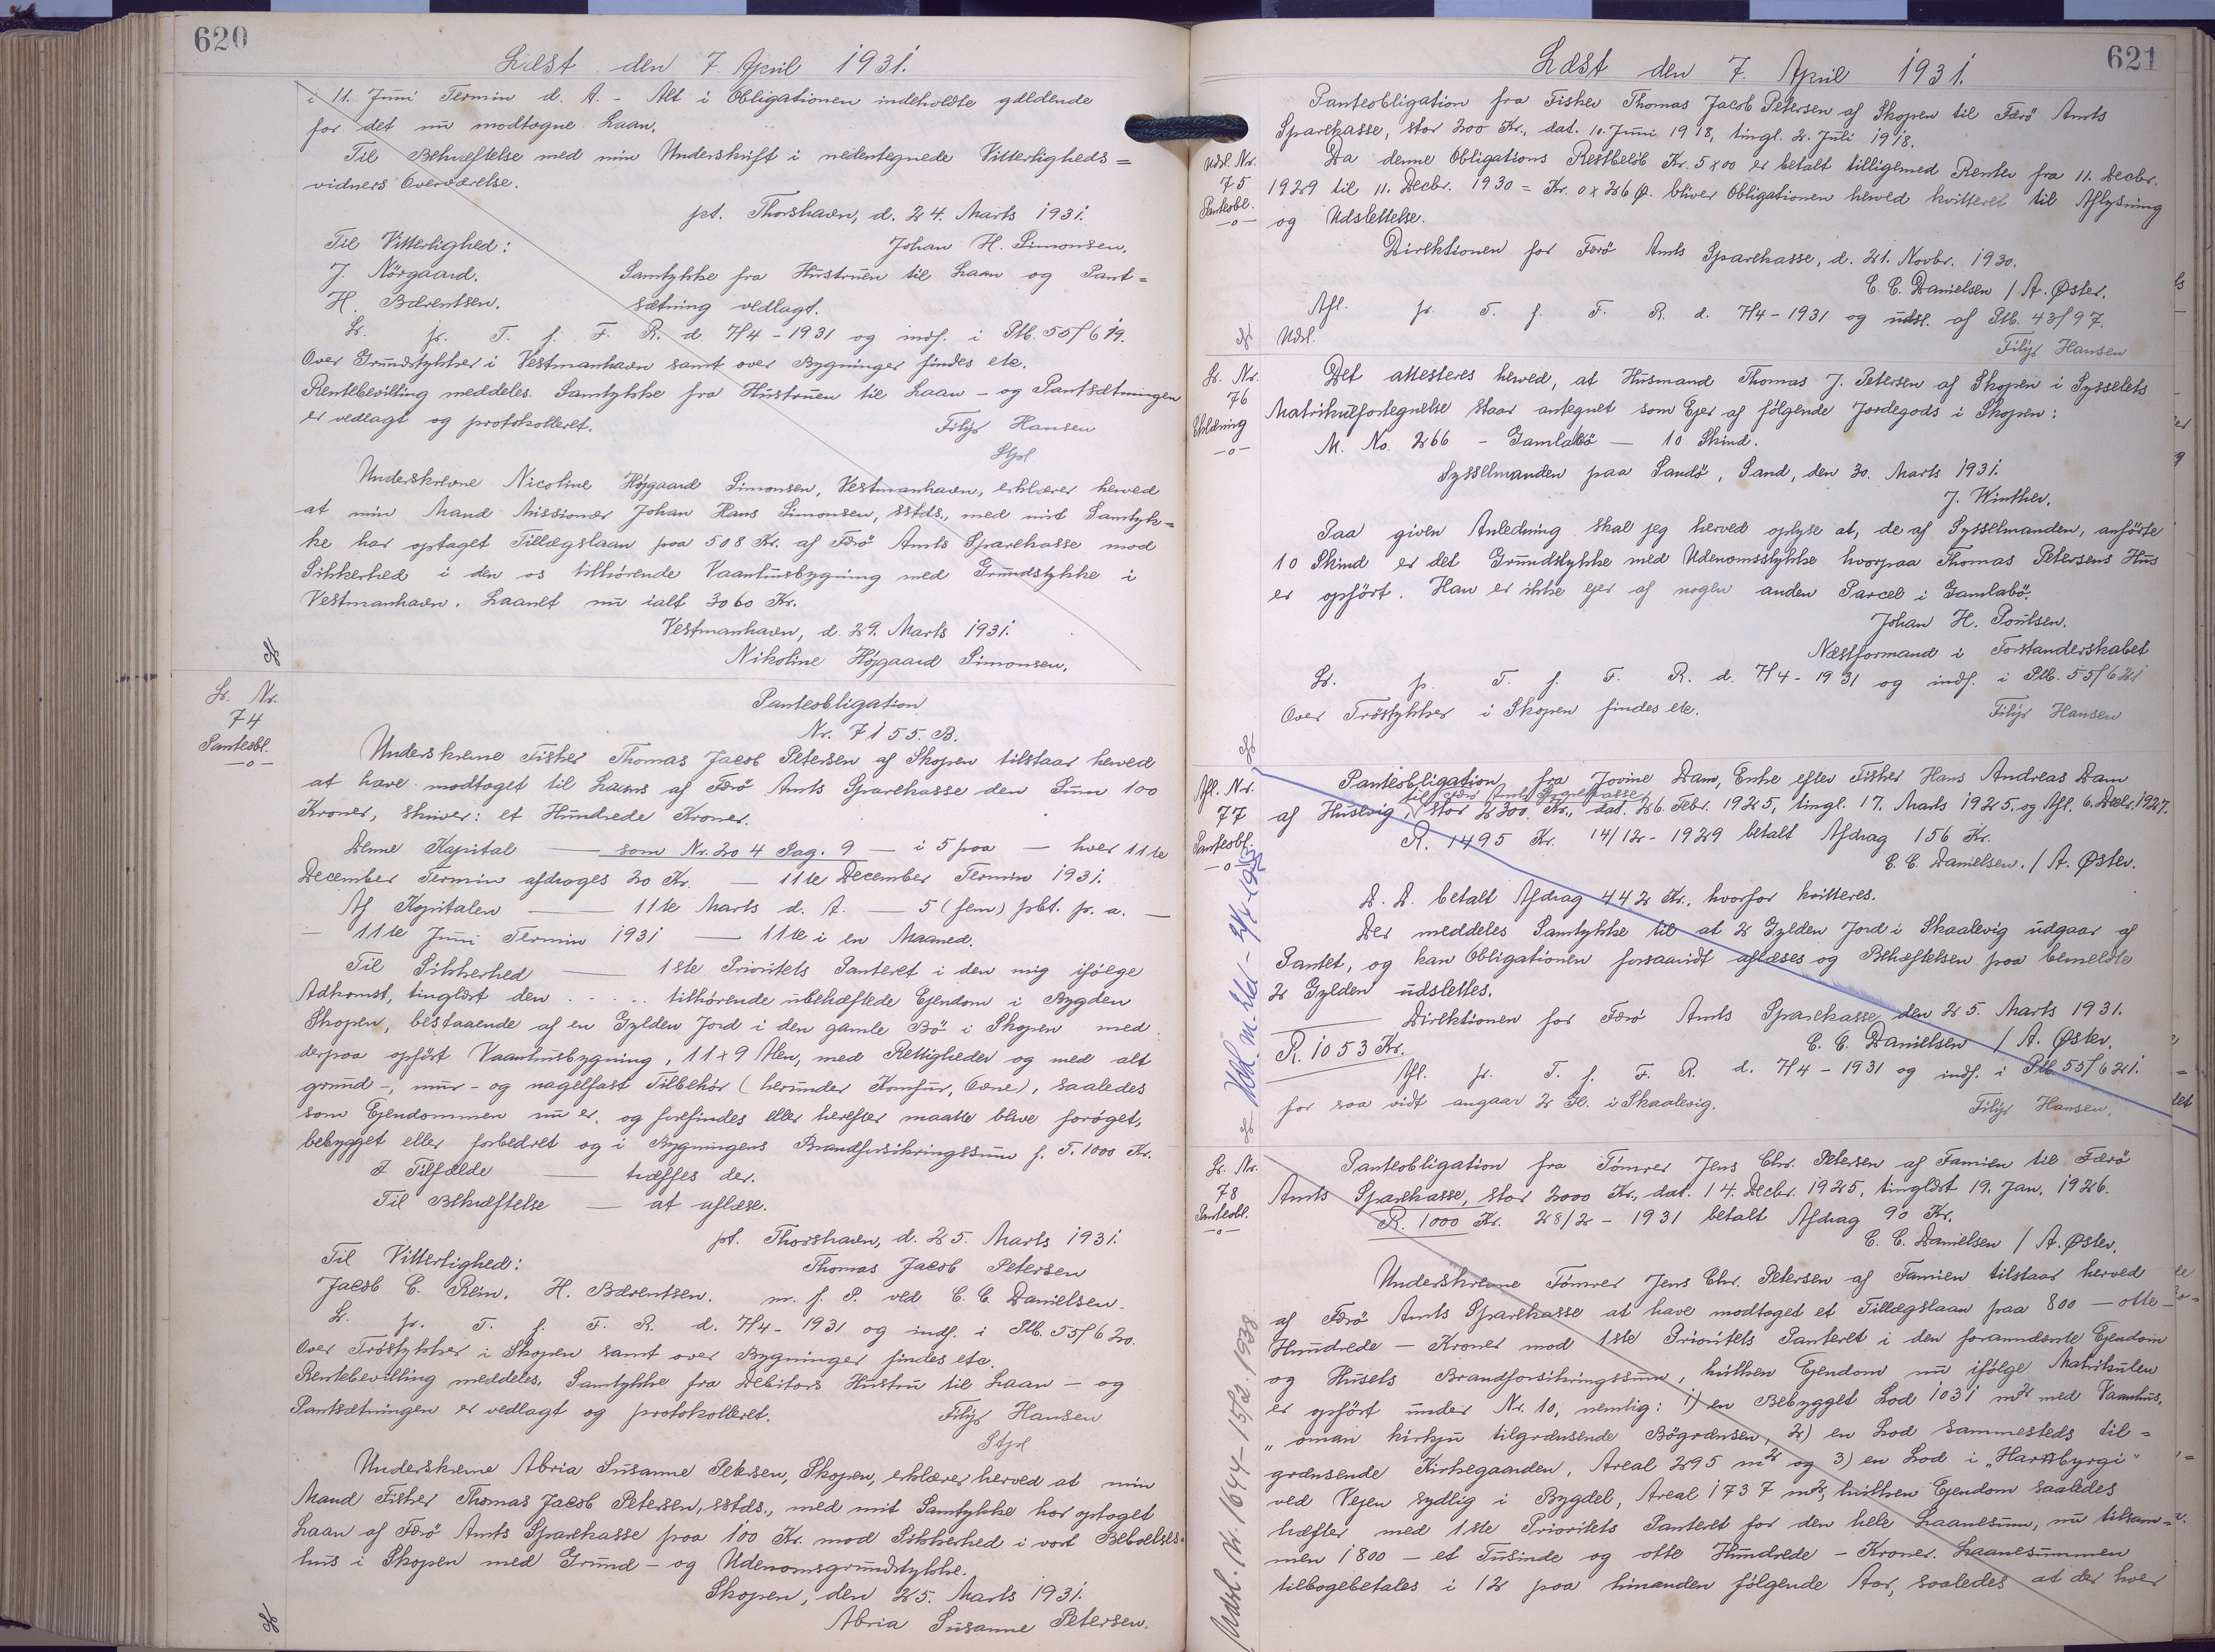 620
Læst den 7 April 1931.
i 11. Juni Termin d. A. - Alt i Obligationen indeholdte gældende
for det nu modtagne Laan.
Til Bekræftelse med min Underskrift i nedentegnede Vitterligheds=
vidners Overværelse.
pt. Thorshavn, d. 24. Marts 1931.
Til Vitterlighed: Johan H. Simonsen.
J. Nörgaard. Samtykke fra Hustruen til Laan og Pant=
H. Bærentsen. sætning vedlagt.
Lr. fr. T. f. F. R. d. 7/4-1931 og indf. i Ptb. 55/619.
Over Grundstykker i Vestmanhavn samt over Bygninger findes etc.
Rentebevilling meddeles. Samtykke fra Hustruen til Laan - og Pantsætningen
er vedlagt og protokolleret. Filip Hansen
Stpl
Underskrevne Nicoline Højgaard Simonsen, Vestmanhavn, erklærer herved
at min Mand Missionær Johan Hans Simonsen, sstds., med mit Samtyk=
ke har optaget Tillægslaan paa 508 Kr. af Færö Amts Sparekasse mod
Sikkerhed i den os tilhörende Vaanhusbygning med Grundstykke i
Vestmanhavn. Laanet nu ialt 3060 Kr.
Vestmanhavn, d. 29. Marts 1931.
Nikoline Højgaard Simonsen.
Lr. Nr.
74
Panteobl.
-o-
Panteobligation
Nr. 7155. B.
Underskrevne Fisker Thomas Jacob Petersen af Skopen tilstaar herved
at have modtaget til Laans af Færö Amts Sparekasse den Sum 100
Kroner, skriver: et Hundrede Kroner.
Denne Kapital — som Nr. 204 Pag. 9 — i 5 paa — hver 11te
December Termin afdrages 20 Kr. — 11te December Termin 1931.
Af Kapitalen — 11te Marts d. A. — 5 (fem) pCt. p. a. —
— 11te Juni Termin 1931 — 11te i en Maaned.
Til Sikkerhed — 1ste Prioritets Panteret i den mig ifölge
Adkomst, tinglæst den . . . . . tilhörende ubehæftede Ejendom i Bygden
Skopen, bestaaende af en Gylden Jord i den gamle Bö i Skopen med
derpaa opfört Vaanhusbygning, 11 x 9 Alen, med Rettigheder og med alt
grund-, mur- og nagelfast Tilbehör (herunder Komfur, Ovne), saaledes
som Ejendommen nu er og forefindes eller herefter maatte blive foröget,
bebygget eller forbedret og i Bygningens Brandforsikringssum f. T. 1000 Kr.
I Tilfælde — træffes der.
Til Bekræftelse — at aflæse.
pt. Thorshavn, d. 25. Marts 1931.
Til Vitterlighed: Thomas Jacob Petersen
Jacob C. Rein. H. Bærentsen. m. f. P. ved C. C. Danielsen.
Lr. fr. T. f. F. R. d. 7/4-1931 og indf. i Ptb. 55/620.
Over Tröstykker i Skopen samt over Bygninger findes etc.
Rentebevilling meddeles. Samtykke fra Debitors Hustru til Laan - og
Pantsætningen er vedlagt og protokolleret. Filip Hansen
Stpl
Underskrevne Abria Susanne Petersen, Skopen, erklærer herved at min
Mand Fisker Thomas Jacob Petersen, sstds., med mit Samtykke har optaget
Laan af Færö Amts Sparekasse paa 100 Kr. mod Sikkerhed i vort Beboelses=
hus i Skopen med Grund- og Udenomsgrundstykke.
Skopen, den 25. Marts 1931.
Abria Susanne Petersen.
621
Læst den 7. April 1931.
Panteobligation fra Fisker Thomas Jacob Petersen af Skopen til Færö Amts
Sparekasse, stor 200 Kr., dat. 10. Juni 1918, tingl. 2. Juli 1918.
Udsl. Nr.
75
Panteobl.
-o-
Da denne Obligations Restbelöb Kr. 5 x 00 er betalt tilligemed Renter fra 11. Decbr.
1929 til 11. Decbr. 1930 = Kr. 0 x 26 Ø. bliver Obligationen herved kvitteret til Aflysning
og Udslettelse.
Direktionen for Færö Amts Sparekasse, d. 21. Novbr. 1930.
C. C. Danielsen / A. Øster.
Afl. fr. T. f. F. R. d. 7/4-1931 og udsl. af Ptb. 43/97.
Udsl. Filip Hansen
Lr. Nr.
76
Erklæring
-o-
Det attesteres herved, at Husmand Thomas J. Petersen af Skopen i Sysselets
Matrikulfortegnelse staar antegnet som Ejer af fölgende Jordegods i Skopen:
M. No. 266 - Gamlabö — 10 Skind.
Sysselmanden paa Sandö, Sand, den 30. Marts 1931.
J. Winther.
Paa given Anledning skal jeg herved oplyse at, de af Sysselmanden, anförte
10 Skind er det Grundstykke med Udenomsstykke hvorpaa Thomas Petersens Hus
er opfört. Han er ikke ejer af nogen anden Parcel i Gamlabö.
Johan H. Poulsen.
Næstformand i Forstanderskabet
Lr. fr. T. f. F. R. d. 7/4-1931 og indf. i Ptb. 55/621
Over Tröstykker i Skopen findes etc. Filip Hansen
Afl. Nr.
77
Panteobl.
-o-
Panteobligation fra Jovine Dam, Enke efter Fisker Hans Andreas Dam
til Færö Amts Sparekasse
af Husevig, stor 2300 Kr., dat. 26. Febr. 1925, tingl. 17. Marts 1925. og Afl. 6. Decbr. 1927.
R. 1495 Kr. 14/12-1929 betalt Afdrag 156 Kr.
C. C. Danielsen. / A. Øster.
D. D. betalt Afdrag 442 Kr., hvorfor kvitteres.
Der meddeles Samtykke til at 2 Gylden Jord i Skaalevig udgaar af
Pantet, og kan Obligationen forsaavidt aflæses og Behæftelsen paa bemeldte
2 Gylden udslettes.
Direktionen for Færö Amts Sparekasse, den 25. Marts 1931.
R. 1053 Kr. C. C. Danielsen / A. Øster.
Afl. fr. T. f. F. R. d. 7/4-1931 og indf. i Ptb. 55/621.
for saa vidt angaar 2 Gl. i Skaalevig. Filip Hansen.
Lr. Nr.
78
Panteobl.
-o-
Panteobligation fra Tömrer Jens Chr. Petersen af Famien til Færö
Amts Sparekasse, stor 2000 Kr., dat. 14. Decbr. 1925, tinglæst 19. Jan. 1926.
R. 1000 Kr. 28/2-1931 betalt Afdrag 90 Kr.
C. C. Danielsen / A. Øster.
Underskrevne Tömrer Jens Chr. Petersen af Famien tilstaar herved
af Færö Amts Sparekasse at have modtaget et Tillægslaan paa 800 — otte
Hundrede — Kroner mod 1ste Prioritets Panteret i den forannævnte Ejendom
og Husets Brandforsikringssum, hvilken Ejendom nu ifölge Matrikulen
er opfört under Nr. 10, nemlig: 1) en Bebygget Lod 1031 m² med Vaanhus,
„oman kirkju tilgrænsende Bögrænsen, 2) en Lod sammesteds til=
grænsende Kirkegaarden, Areal 295 m² og 3) en Lod i „Hambyrgi"
ved Vejen sydlig i Bygdel, Areal 1737 m², hvilken Ejendom saaledes
hæfter med 1ste Prioritets Panteret for den hele Laanesum, nu tilsam=
men 1800 — et Tusinde og otte Hundrede — Kroner. Laanesummen
tilbagebetales i 12 paa hinanden fölgende Aar, saaledes at der hver
Udsl. Nr. 1644-15/2.1938